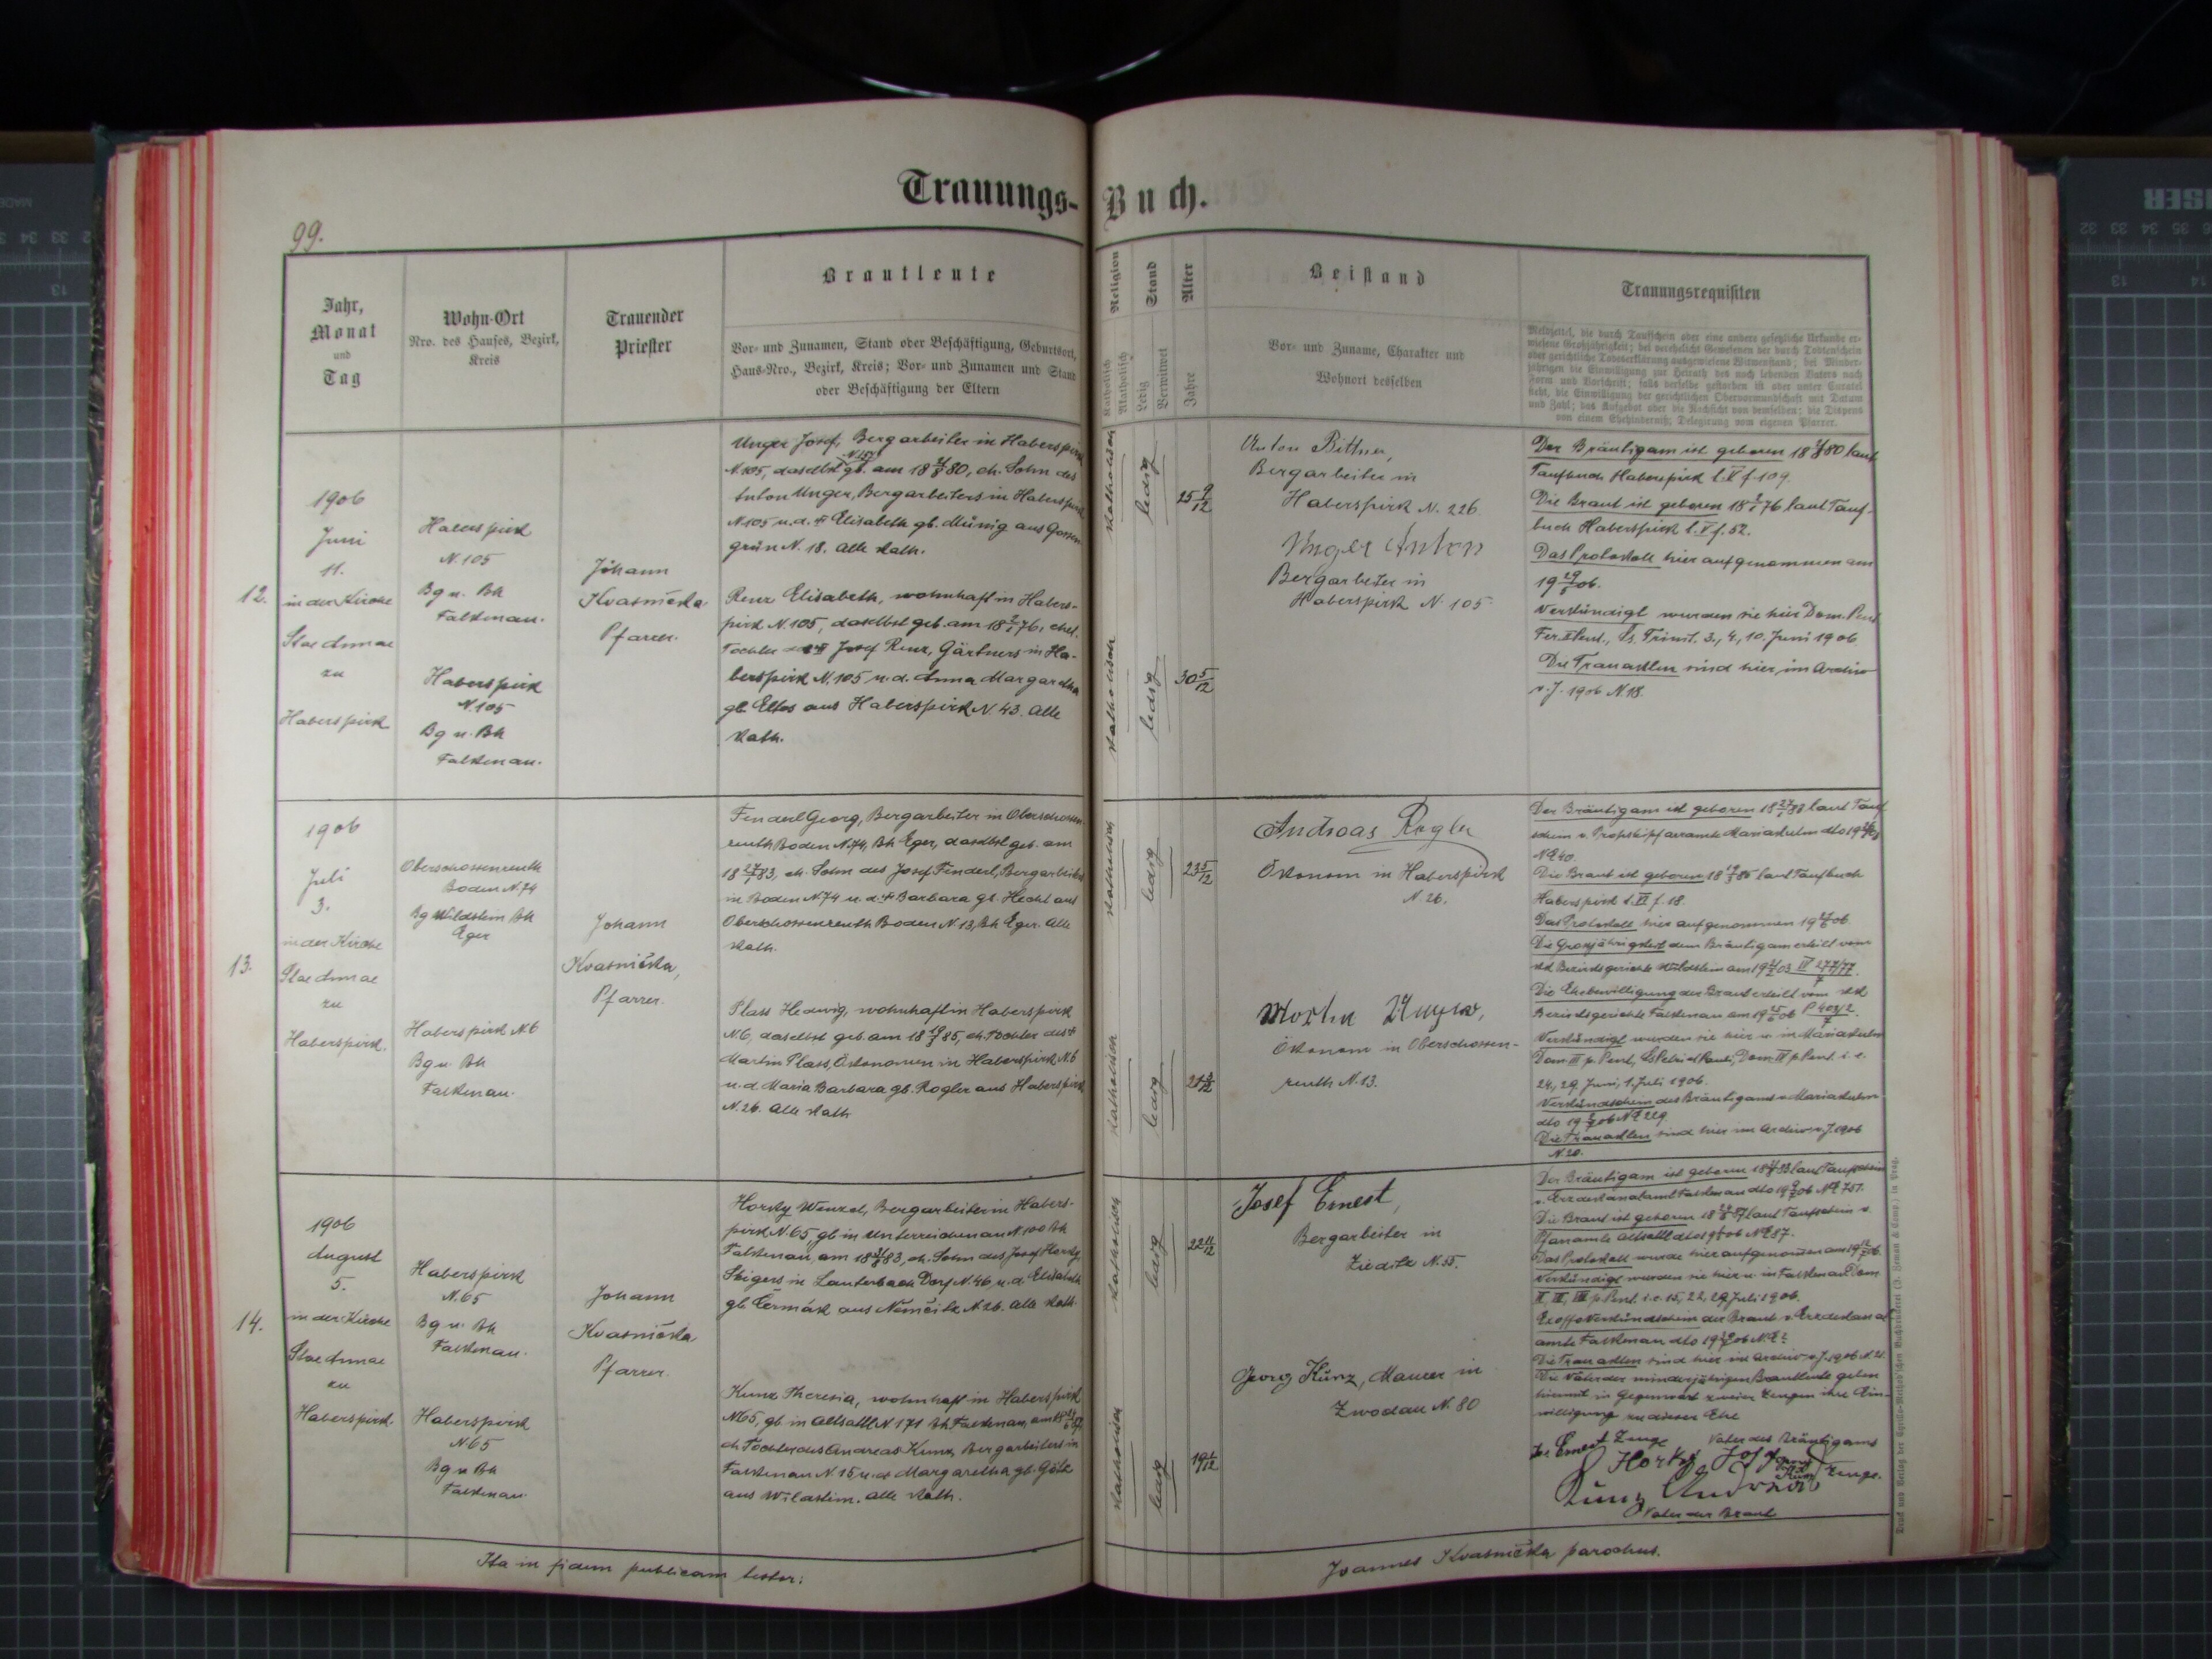 Trauungs-Buch.
99.
Jahr,
Monat
und
Tag
Wohn-Ort
Nro. des Hauses, Bezirk,
Kreis
Trauender
Priester
Brautleute
Vor- und Zunamen, Stand oder Beschäftigung, Geburtsort,
Haus-Nro., Bezirk, Kreis; Vor- und Zunamen und Stand
oder Beschäftigung der Eltern
Religion
Katholisch
Akatholisch
Stand
Ledig
Verwitwet
Alter
Jahre
Beistand
Vor- und Zuname, Charakter und
Wohnort desselben
Trauungsrequisiten
Meldzettel, die durch Taufschein oder eine andere gesetzliche Urkunde er-
wiesene Großjährigkeit; bei verehelicht Gewesenen der durch Todtenschein
oder gerichtliche Todeserklärung ausgewiesene Witwerstand; bei Minder-
jährigen die Einwilligung zur Heirath des noch lebenden Vaters nach
Form und Vorschrift; falls derselbe gestorben ist oder unter Curatel
steht, die Einwilligung der gerichtlichen Obervormundschaft mit Datum
und Zahl; das Aufgebot oder die Nachsicht von demselben; die Dispens
von einem Ehehinderniß; Delegirung vom eigenen Pfarrer.
12.
1906
Juni
11.
in der Kirche
Stae Annae
zu
Haberspirk
Haberspirk
N. 105
Bg u. Bh
Falkenau.
Haberspirk
N. 105
Bg u. Bh
Falkenau.
Johann
Kvasnička,
Pfarrer.
Unger Josef, Bergarbeiter in Haberspirk
N. 105, daselbst gb. am 80, eh. Sohn des
Anton Unger, Bergarbeiters in Haberspirk
N 105 u. d. Elisabeth gb. Münig aus Gossen-
grün N. 18. Alle kath.
Renz Elisabeth, wohnhaft in Habers-
pirk N. 105, daselbst geb. am 76, ehel.
Tochter des Josef Renz, Gärtners in Ha-
berspirk N. 105 u. d. Anna Margaretha
gb. aus Haberspirk N. 43. Alle
kath.
katholisch
ledig
25 9/12
katholisch
ledig
30 5/12
Anton Bittner,
Bergarbeiter in
Haberspirk N. 226
Unger Anton
Bergarbeiter in
Haberspirk N. 105
Der Bräutigam ist geboren 80 laut
Taufbuch Haberspirk t. V f. 109.
Die Braut ist geboren 76 laut Tauf-
buch Haberspirk t. V f. 52.
Das Protokoll hier aufgenommen am
06.
Verkündigt wurden sie hier Dom. Pent
Fer. II Pent., Ss. Trinit. 3., 4., 10. Juni 1906
Die Trauakten sind hier im Archiv
v. J. 1906 N. 18.
13.
1906
Juli
3.
in der Kirche
Stae Annae
zu
Haberspirk.
Oberschossenreuth
Boden N. 74
Bg Wildstein Bh
Eger
Haberspirk N. 6
Bg u. Bh
Falkenau.
Johann
Kvasnička,
Pfarrer.
Fenderl Georg, Bergarbeiter in Oberschossen-
reuth Boden N. 74, Bh Eger, daselbst geb. am
83, eh. Sohn des Josef Fenderl, Bergarbeiters
in Boden N 74 u. d. Barbara gb. Hecht aus
Oberschossenreuth Boden N. 13, Bh Eger. Alle
kath.
Plass Hedwig, wohnhaft in Haberspirk
N. 6, daselbst geb. am 85, eh. Tochter des
Martin Plass, Ökonomen in Haberspirk N. 6
u. d. Maria Barbara gb. Rogler aus Haberspirk
N. 26. Alle kath.
katholisch
ledig
23 5/12
katholisch
ledig
Andreas Rogler
Ökonom in Haberspirk
N. 26.
Ökonom in Oberschossen-
reuth N. 13.
Der Bräutigam ist geboren laut Tauf
schein v. Propsteipfarramte Mariakulm dto
N 240.
Die Braut ist geboren 85 laut Taufbuch
Haberspirk t. VI f. 18.
Das Protokoll hier aufgenommen 06
Die Grossjährigkeit dem Bräutigam erteilt vom
kk Bezirksgerichte Wildstein am 03
Die Ehebewilligung der Braut erteilt vom kk
Bezirksgerichte Falkenau am 06
Verkündigt wurden sie hier u. in Mariakulm
Dom. III p. Pent, Ss Petri et Pauli, Dom. IV p. Pent. i. e.
24., 29. Juni, 1. Juli 1906.
Verkündschein des Bräutigams v. Mariakulm
dto 06
Die Trauakten sind hier im Archiv v. J. 1906
N. 20.
14.
1906
August
5.
in der Kirche
Stae Annae
zu
Haberspirk.
Haberspirk
N. 65
Bg u. Bh
Falkenau.
Haberspirk
N 65
Bg u Bh
Falkenau.
Johann
Kvasnička
Pfarrer.
Horky Wenzel, Bergarbeiter in Habers-
pirk N. 65, gb. in Unterreichenau N. 100 Bh
Falkenau, am 83, eh. Sohn des Josef Horky,
Steigers in Lauterbach Dorf N. 46, u. d. Elisabeth
gb Čermák aus N. 26. Alle kath.
Kunz Theresia, wohnhaft in Haberspirk
N 65, gb. in Altsattl N. 171 Bh Falkenau, am
eh. Tochter des Andreas Kunz, Bergarbeiters in
Falkenau N. 15 u. d. Margaretha gb. Götz
aus Wildstein. Alle kath.
katholisch
ledig
22 11/12
katholisch
ledig
Josef Ernest,
Bergarbeiter in
Zieditz N. 55.
Georg Künz, Maurer in
Zwodau N. 80
Der Bräutigam ist geboren 83 laut Taufschein
v. Erzdekanalamt Falkenau dto 06 751.
Die Braut ist geboren laut Taufschein v.
Pfarramte Altsattl dto 06
Das Protokoll wurde hier aufgenommen am
Verkündigt wurden sie hier u. in Falkenau Dom
i. e. 15., 22., 29. Juli 1906.
Ex offo Verkündschein der Braut v. Erzdekanal
amte Falkenau dto 06
Die Trauakten sind hier im Archiv v. J. 1906 N. 21.
Die Väter der minderjährigen Brautleute geben
hiemit in Gegenwart zweier Zeugen ihre Ein-
willigung zu dieser Ehe
Jos. Ernest Zeuge Vater des Bräutigams
Horky Josef
Georg Künz Zeuge.
Künz Andreas
Vater der Braut
Ita in fidem publicam testor:
Joannes Kvasnička parochus.
Druck und Verlag der Cyrillo-Method'schen Buchdruckerei (J. Zeman & Comp.) in Prag.